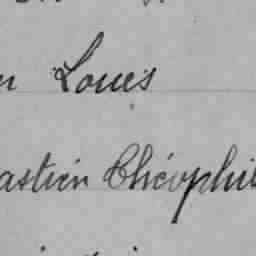 n Loues
astien Théophil